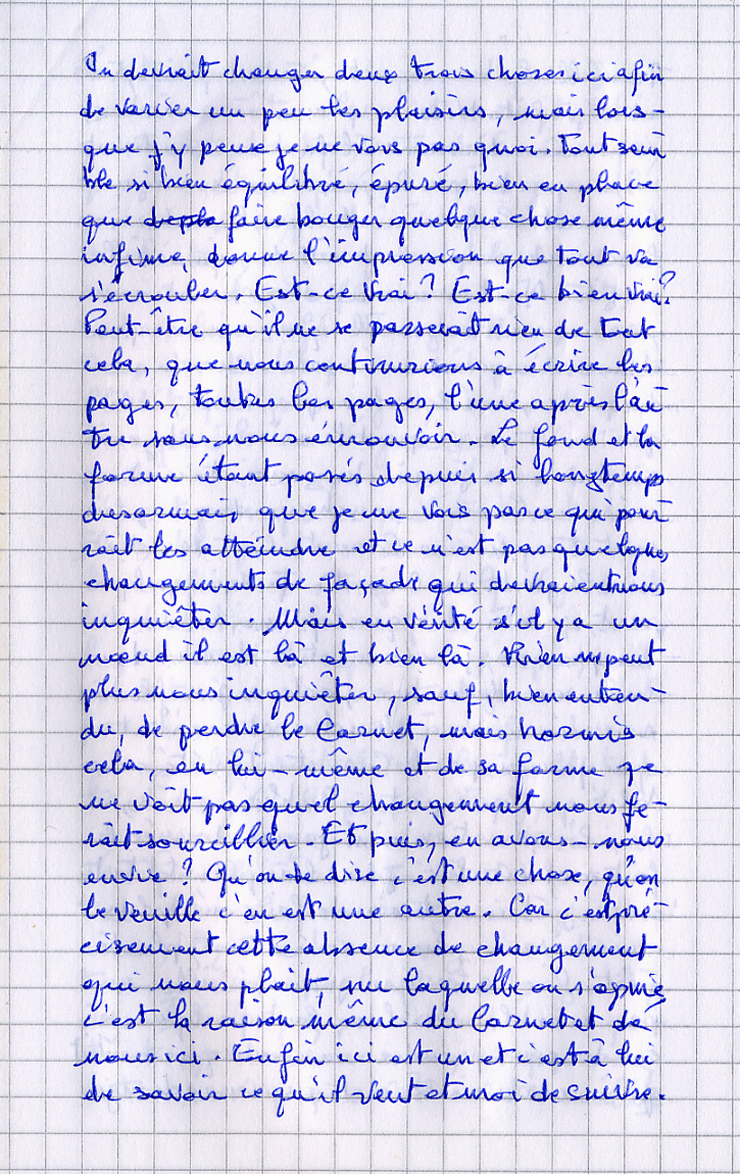 On devrait changer deux trois choses ici afin
de varier un peu les plaisirs, mais lors-
que j'y pense je ne vois pas quoi. Tout sem
ble si bien équilibré, épuré, bien en place
que depla faire bouger quelque chose même
infime, donne l'impression que tout va
s'écrouler. Est-ce vrai ? Est-ce bien vrai ?
Peut-être qu'il ne se passerait rien de tout
cela, que nous continurions à écrire les
pages, toutes les pages, l'une après l'au
tre sans nous émouvoir. Le fond et la
forme étant posés depuis si longtemps
desormais, que je ne vois pas ce qui pour
rait les atteindre et ce n'est pas quelques
changements de façade qui devraient nous
inquiêter. Mais en vérité s'il y a un
nœud il est là et bien là. Rien ne peut
plus nous inquiêter, sauf, bien enten-
du, de perdre le Carnet, mais hormis
cela, en lui-même et de sa forme je
ne voit pas quel changement nous fe-
rait sourciller. Et puis, en avons-nous
envie ? Qu'on le dise c'est une chose, qu'on
le veuille c'en est une autre. Car c'est pré-
cisement cette absence de changement
qui nous plait, sur laquelle on s'apuie,
c'est la raison même du Carnet et de
nous ici. Enfin ici est un et c'est à lui
de savoir ce qu'il veut et moi de suivre.